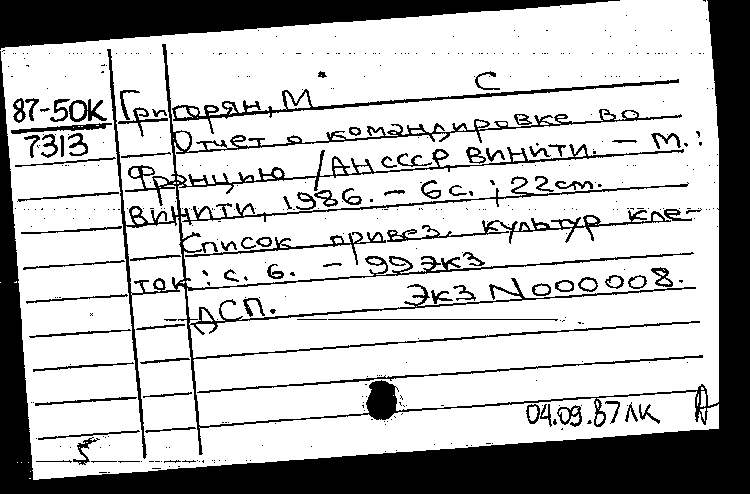 С
87-50К Григорян, М
7313 Отчет о командировке во
Францию / АН СССР, ВИНИТИ. — М.:
ВИНИТИ, 1986. — 6 с. ; 22 см.
Список привез. культур кле-
ток: с. 6. — 99 экз
ДСП. Экз N 000008.
04.09.87 ЛК
5